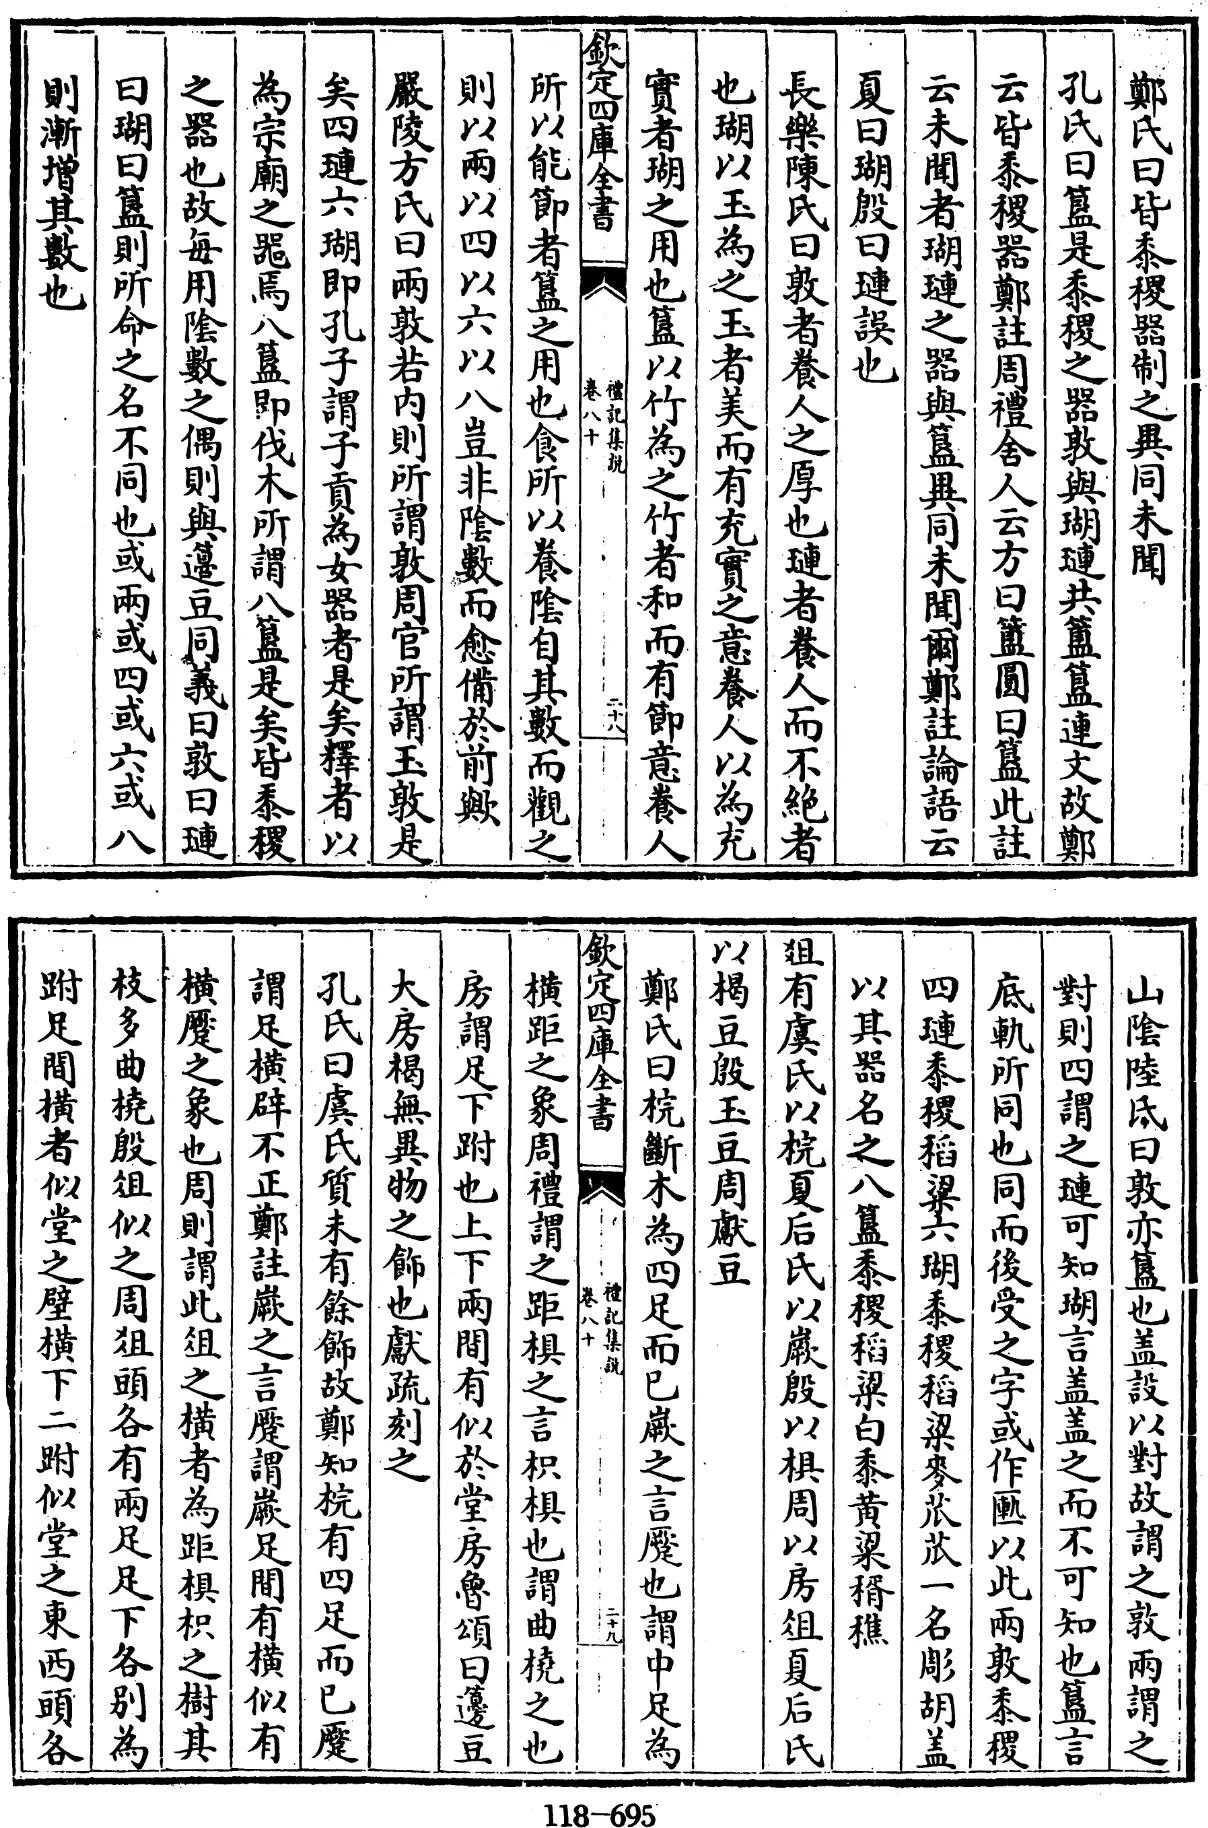 鄭氏曰皆黍稷器制之異同未聞
孔氏曰簋是黍稷之器敦與瑚璉共簠簋連文故鄭
云皆黍稷器鄭註周禮舍人云方曰簠圓曰簋此註
云未聞者瑚璉之器與簋異同未聞爾鄭註論語云
夏曰瑚殷曰璉誤也
長樂陳氏曰敦者養人之厚也璉者養人而不絶者
也瑚以玉為之玉者美而有充實之意養人以為充
實者瑚之用也簋以竹為之竹者和而有節意養人
欽定四庫全書
禮記集説
卷八十
二十八
所以能節者簋之用也食所以養陰自其數而觀之
則以兩以四以六以八豈非陰數而愈備於前歟
嚴陵方氏曰兩敦若内則所謂敦周官所謂玉敦是
矣四璉六瑚即孔子謂子貢為女器者是矣釋者以
為宗廟之器焉八簋即伐木所謂八簋是矣皆黍稷
之器也故每用陰數之偶則與籩豆同義曰敦曰璉
曰瑚曰簋則所命之名不同也或兩或四或六或八
則漸增其數也
山陰陸氏曰敦亦簋也盖設以對故謂之敦兩謂之
對則四謂之璉可知瑚言盖盖之而不可知也簋言
底軌所同也同而後受之字或作匭以此兩敦黍稷
四璉黍稷稻粱六瑚黍稷稻粱麥苽苽一名彫胡盖
以其器名之八簋黍稷稻粱白黍黄粱稰穛
俎有虞氏以梡夏后氏以嶡殷以椇周以房俎夏后氏
以楬豆殷玉豆周獻豆
鄭氏曰梡斷木為四足而已嶡之言蹷也謂中足為
欽定四庫全書
禮記集説
卷八十
二十九
橫距之象周禮謂之距椇之言枳椇也謂曲橈之也
房謂足下跗也上下兩間有似於堂房魯頌曰籩豆
大房楬無異物之飾也獻疏刻之
孔氏曰虞氏質未有餘飾故鄭知梡有四足而已蹷
謂足橫辟不正鄭註嶡之言蹷謂嶡足間有橫似有
橫蹷之象也周則謂此俎之橫者為距椇枳之樹其
枝多曲橈殷俎似之周俎頭各有兩足足下各别為
跗足間橫者似堂之壁橫下二跗似堂之東西頭各
118-695